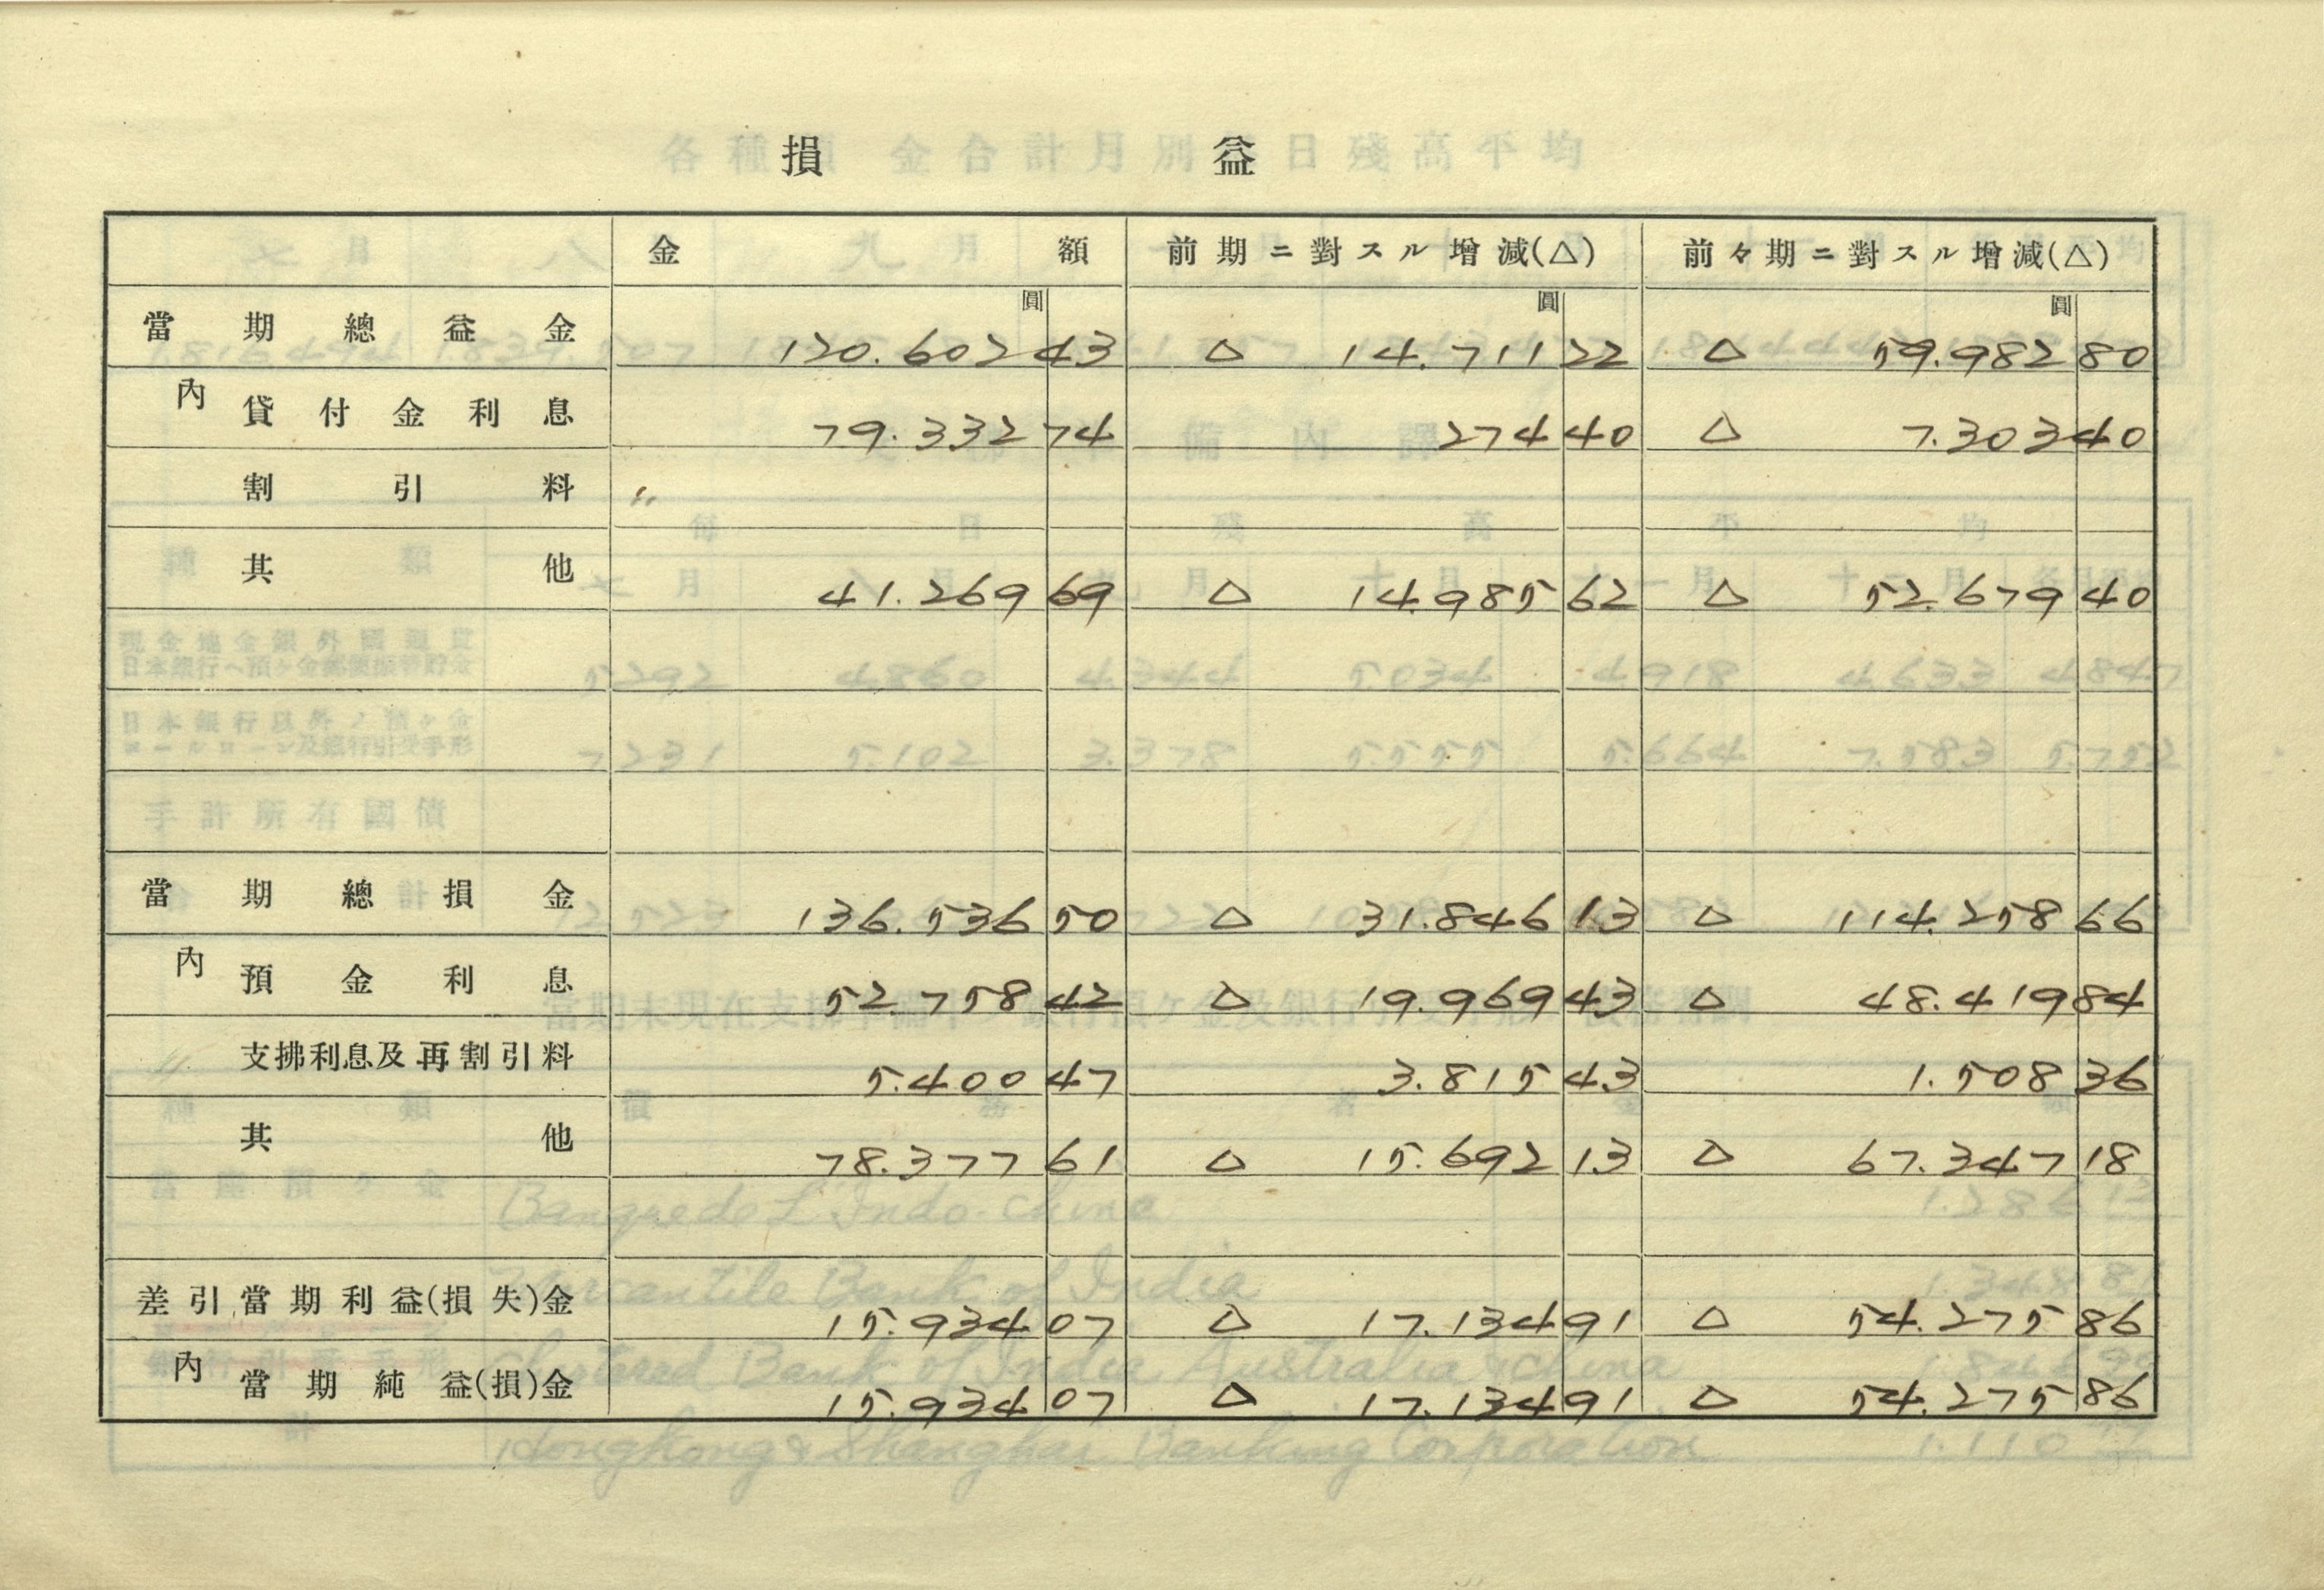 損 益
金 額 前期ニ對スル增減(△) 前々期ニ對スル增減(△)
圓 圓 圓
當期總益金 120.602 43 △ 14.711 22 △ 59.982 80
內 貸付金利息 79.332 74 274 40 △ 7.303 40
割引料 〃
其他 41.269 69 △ 14.985 62 △ 52.679 40
當期總損金 136.536 50 △ 31.846 13 △ 114.258 66
內 預金利息 52.758 42 △ 19.969 43 △ 48.419 84
〃 支拂利息及再割引料 5.400 47 3.815 43 1.508 36
其他 78.377 61 △ 15.692 13 △ 67.347 18
差引當期利益(損失)金 15.934 07 △ 17.134 91 △ 54.275 86
內 當期純益(損)金 15.934 07 △ 17.134 91 △ 54.275 86